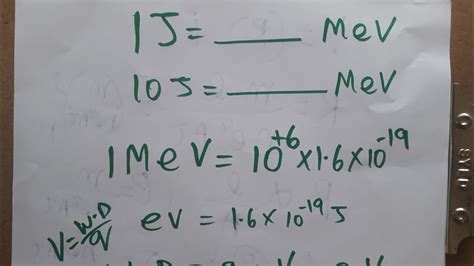 1J = ______ MeV
10J = ______ MeV
1MeV = 10⁺⁶×1.6×10⁻¹⁹
V = W.D/q eV = 1.6×10⁻¹⁹J